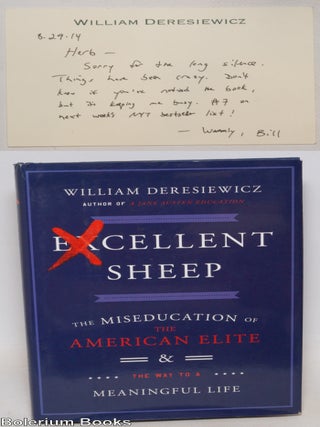 WILLIAM DERESIEWICZ
8.29.14
Herb —
Sorry for the long silence.
Things have been crazy. Don't
know if you've noticed the book,
but it's keeping me busy. #7 on
next week's NYT bestseller list!
— Warmly, Bill
WILLIAM DERESIEWICZ
AUTHOR OF A JANE AUSTEN EDUCATION
EXCELLENT
SHEEP
THE MISEDUCATION OF
THE
AMERICAN ELITE
&
THE WAY TO A
MEANINGFUL LIFE
Bolerium Books